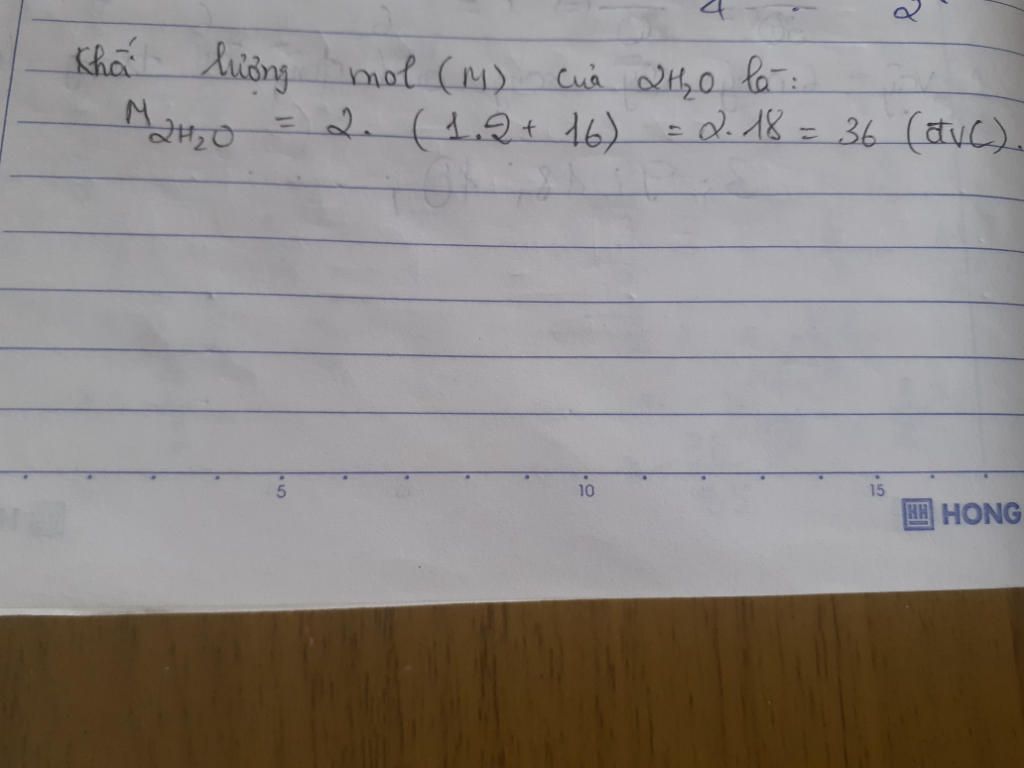 4 2
Khấ lượng mol (M) của 2H₂O là:
M₂H₂O = 2. (1.2 + 16) = 2.18 = 36 (đvC).
5 10 15
HH HONG